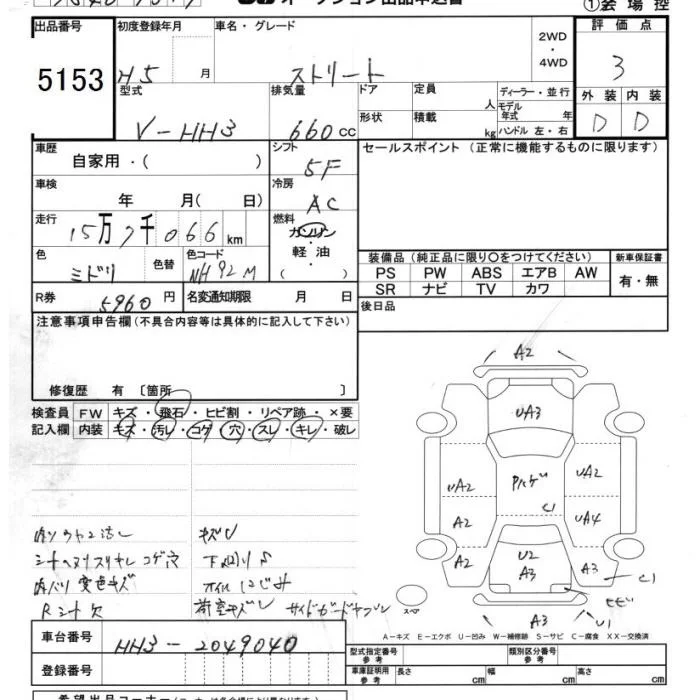 オークション出品申込書
①会場控
出品番号 初度登録年月 車名・グレード 2WD・4WD 評価点
5153 H5 月 ストリート 3
型式 排気量 ドア 定員 人 ディーラー・並行 外装 内装
V-HH3 660cc 形状 積載 kg モデル年式 年 ハンドル 左・右 D D
車歴 自家用・( ) シフト 5F セールスポイント (正常に機能するものに限ります)
車検 年 月( 日) 冷房 AC
走行 15万7千066km 燃料 ガソリン・軽油・( )
色 ミドリ 色替 色コード NH92M
装備品 (純正品に限り〇をつけてください) 新車保証書
PS PW ABS エアB AW 有・無
SR ナビ TV カワ
R券 5960円 名変通知期限 月 日 後日品
注意事項申告欄 (不具合内容等は具体的に記入して下さい)
修復歴 有 〔箇所 〕
検査員 FW キズ・飛石・ヒビ割・リペア跡・×要
記入欄 内装 キズ・汚レ・コゲ・穴・スレ・キレ・破レ
A2
UA3
UA2 Pハゲ UA2
C1
A2 UA4
A2 U2 A3 A3 C1
ヒビ
スペア A3 U1
キズU
シートヘタリスリキレ コゲ穴
内バリ 変色キズ オイルにじみ
Rシート欠 サイドガードケーブル
A－キズ E－エクボ U－凹み W－補修跡 S－サビ C－腐食 XX－交換済
車台番号 HH3-2049040
型式指定番号 参考 類別区分番号 参考
登録番号 車庫証明用 参考 長さ cm 幅 cm 高さ cm
希望出品コーナー